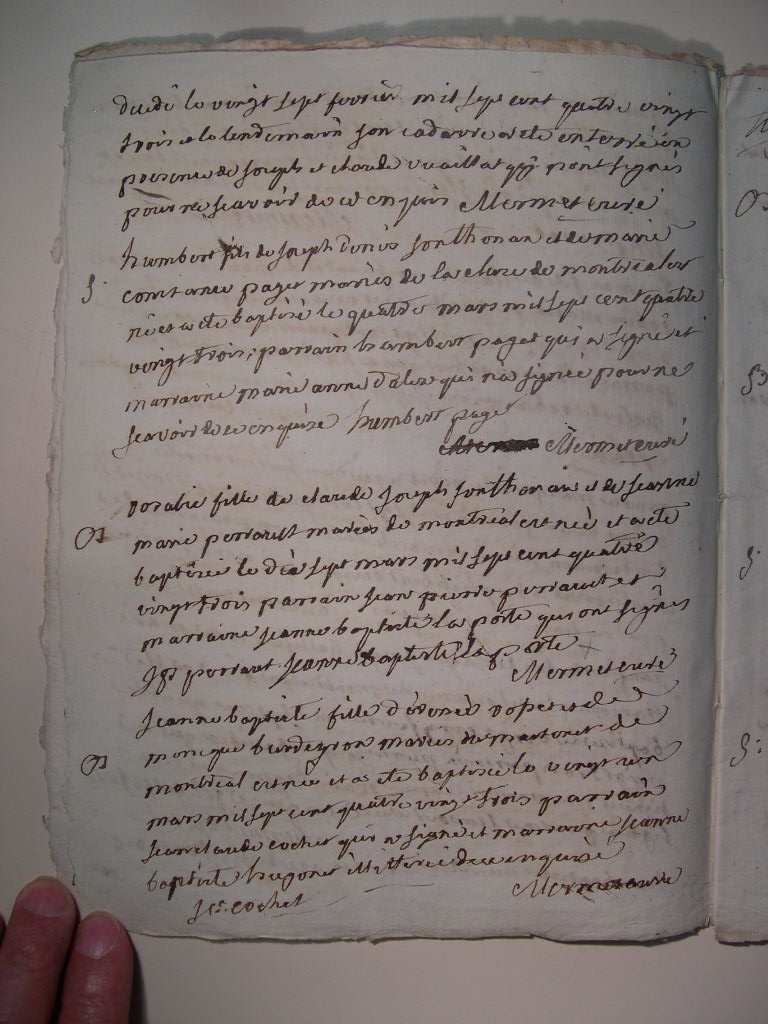 décédé le vingt sept fevrier mil sept cent quatre vingt
trois et le lendemain son cadavre a eté enterré en
presence de Joseph et claude vuaillat qui n'ont signés
pour ne scavoir de ce enquis Mermet curé
humbert fils de Joseph denis Sonthonax et de marie
S.
constance paget mariés de la cluse de montreal est
né et a ete baptisé le quatre mars mil sept cent quatre
vingt trois; parrain humbert paget qui a signé et
marraine marie anne qui n'a signée pour ne
scavoir de ce enquise humbert paget
Mermet curé
rosalie fille de claude Joseph Sonthonax et de Jeanne
marie perraut mariés de montreal est née et a ete
baptisée le dix sept mars mil sept cent quatre
vingt trois parrain Jean pierre perraut et
marraine Jeanne baptiste la porte qui ont signés
perraut Jeanne baptiste la porte
Mermet curé
Jeanne baptiste fille d'
monique mariés de martonet de
montreal est née et a ete baptisée le vingt un
mars mil sept cent quatre vingt trois parrain
Jean claude cochet qui a signé et marraine Jeanne
baptiste hugonet illitérée de ce enquise
J. C. cochet
Mermet curé